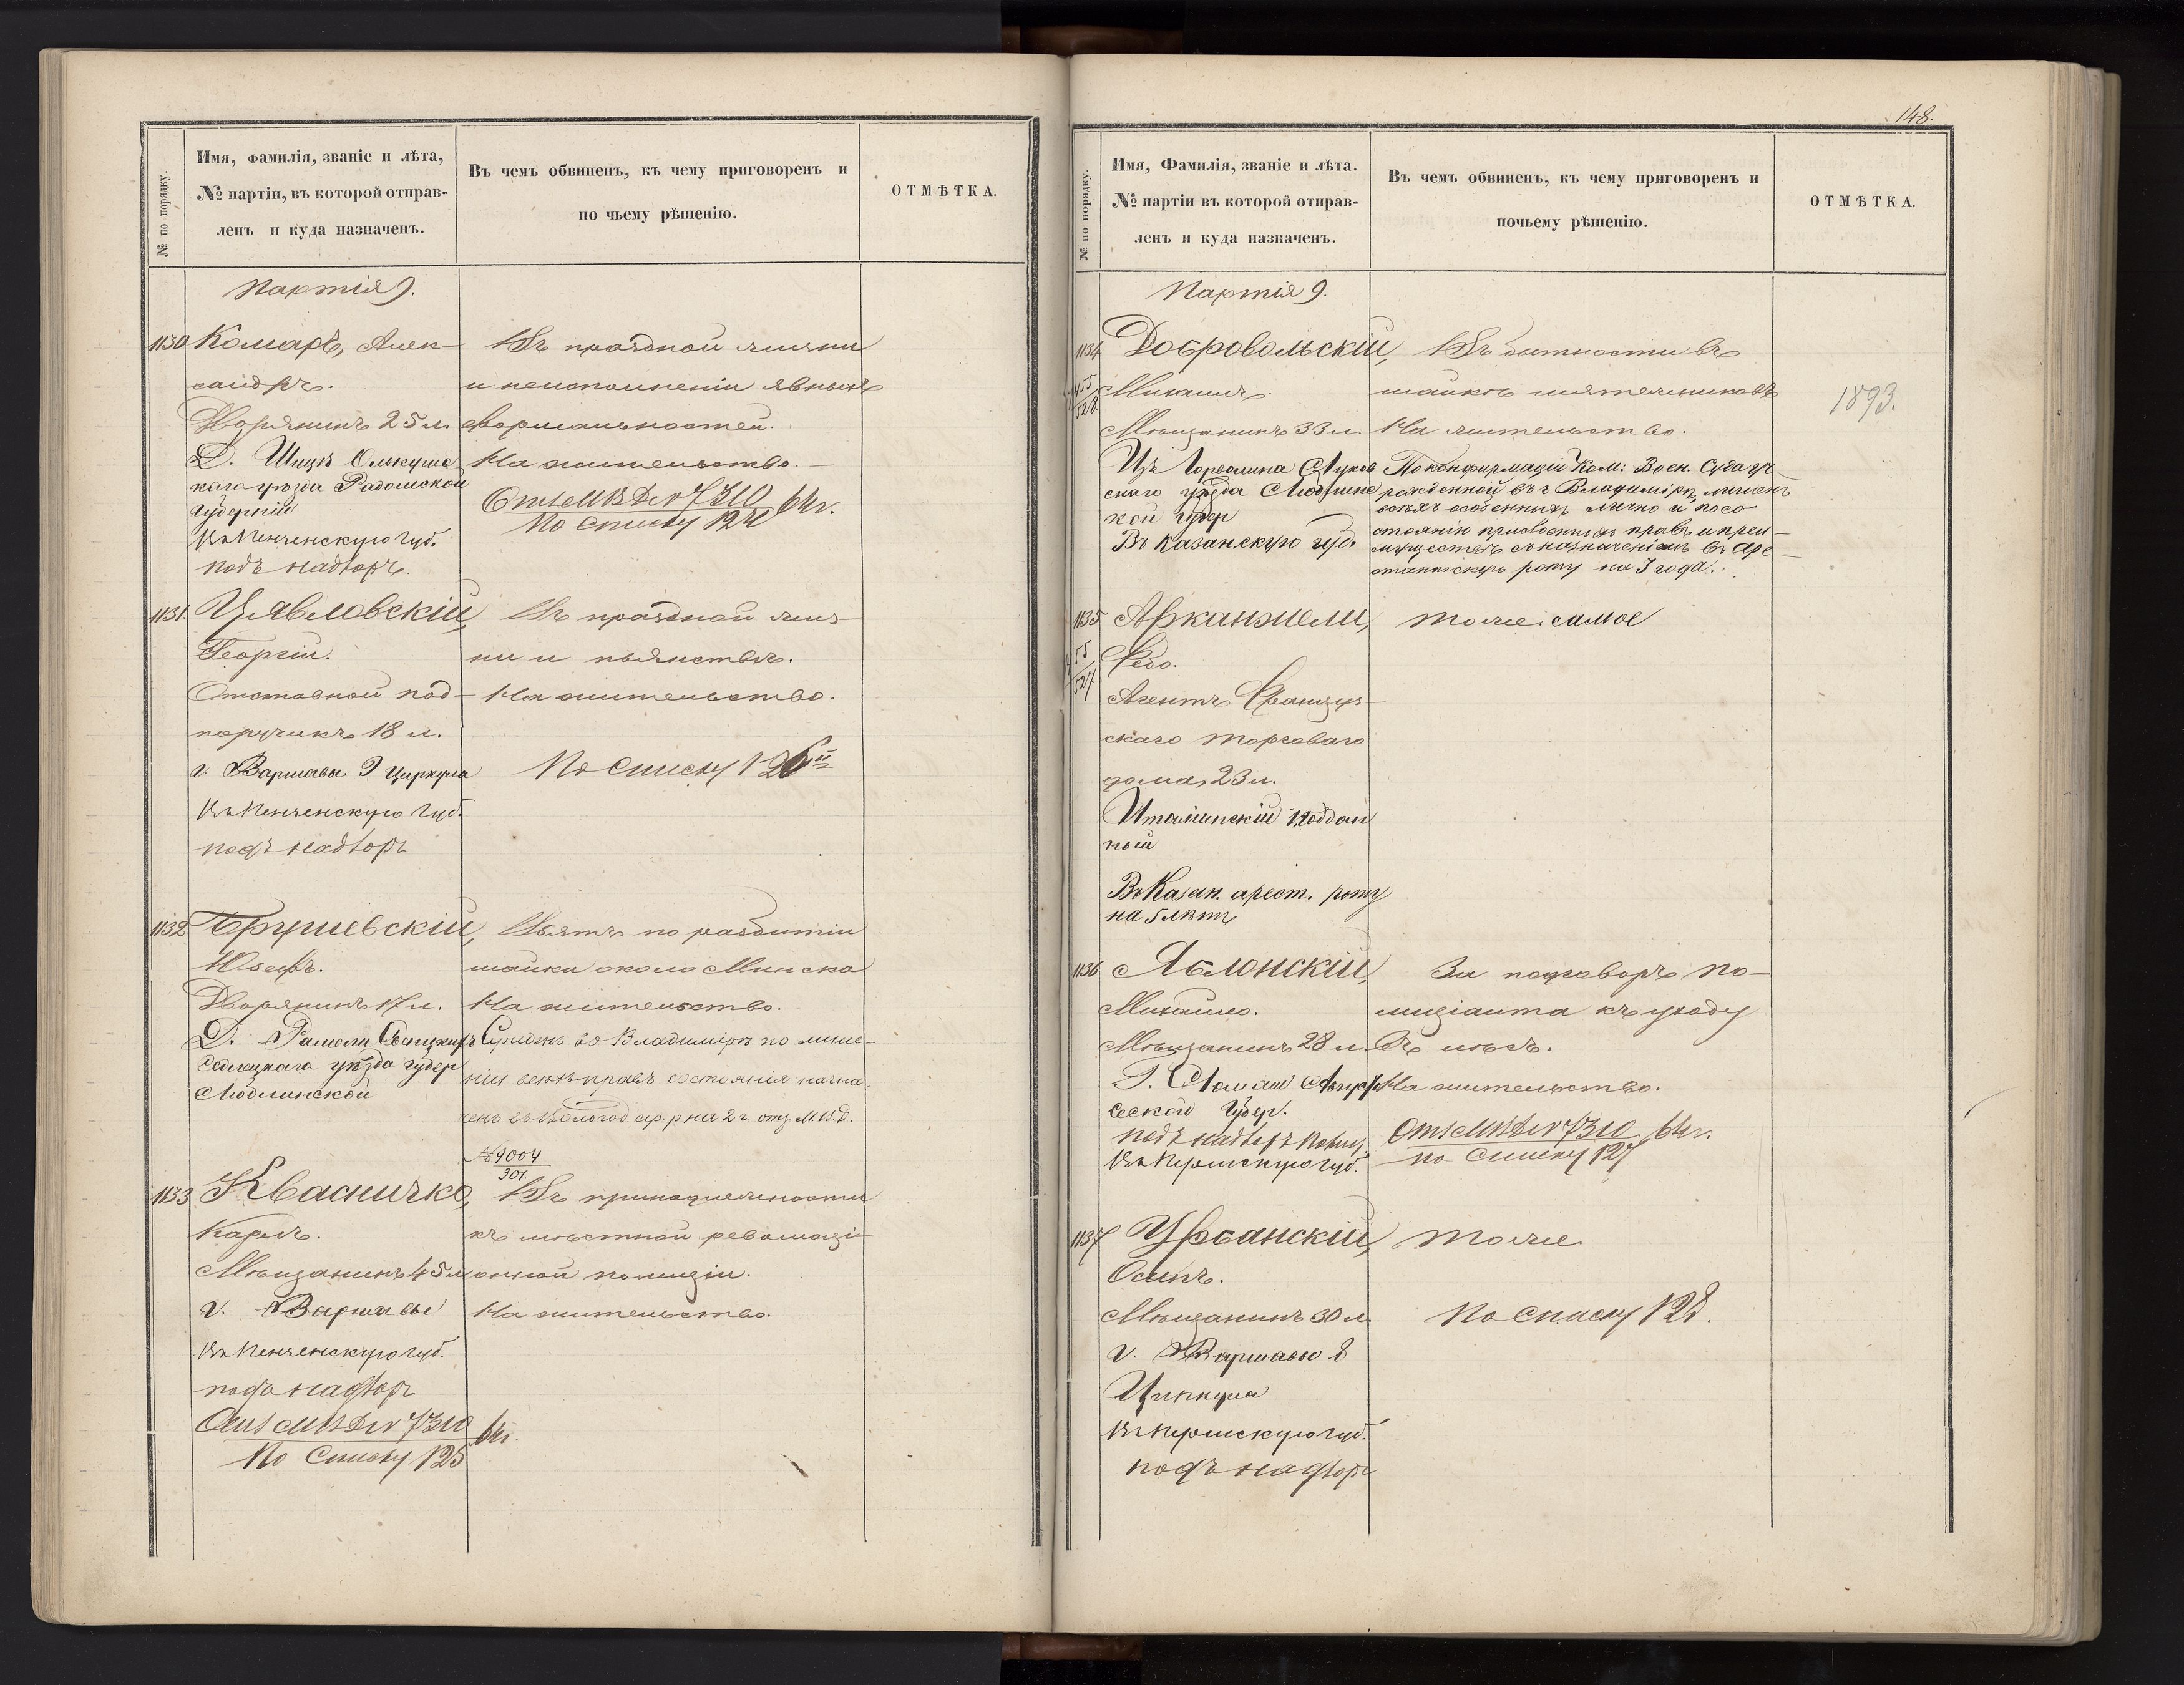 № по порядку.
Имя, фамилія, званіе и лѣта,
№ партіи, въ которой отправ-
ленъ и куда назначенъ.
Въ чемъ обвиненъ, къ чему приговоренъ и
по чьему рѣшенію.
ОТМѢТКА.
Партія 9.
1130 Комаръ, Алек-
сандръ.
Дворянинъ 25 л.
Д. Шицы Олькуша
каго уѣзда Радомской
Губерніи
Въ Пензенскую губ.
подъ надзоръ.
Въ праздной жизни
и неисполненіи явныхъ
формальностей.
На жительство.
Отн МВД № 7310 64 г.
По списку 124
1131. Цявловскій,
Георгій.
Отставной под-
поручикъ 18 л.
г. Варшавы 9 циркула
Въ Пензенскую губ.
подъ надзоръ
Въ праздной жиз-
ни и пьянствѣ.
На жительство.
По списку 126й
1132
Юзефъ.
Дворянинъ 17 л.
Д.
Седлецкаго уѣзда губер
Люблинской
Взятъ по разбитіи
шайки около Минска
На жительство.
Сужденъ во Владимірѣ по лише-
ніи всѣхъ правъ состоянія назна
ченъ въ Вологод. ар. р на 2 г. отз. М.В.Д.
№ 4004
301.
1133 Квасничко,
Карлъ.
Мѣщанинъ 45 л
г. Варшавы
Въ Пензенскую губ.
подъ надзоръ
Отн МВД № 7310 64 г.
По списку 125
Въ принадлежности
къ мѣстной революці-
онной полиціи.
На жительство.
148.
№ по порядку.
Имя, Фамилія, званіе и лѣта.
№ партіи въ которой отправ-
ленъ и куда назначенъ.
Въ чемъ обвиненъ, къ чему приговоренъ и
почьему рѣшенію.
ОТМѢТКА.
Партія 9.
1134 Добровольскій,
55
528
Михаилъ.
Мѣщанинъ 33 л.
Изъ Горволина Луков
скаго уѣзда Люблинс
кой губер
Въ Казанскую губ.
Въ бытности въ
шайкѣ мятежниковъ
На жительство.
По конфирмаціи Ком: Воен. Суда уч
режденной въ г Владимірѣ, лишенъ
всѣхъ особенныхъ лично и по со
стоянію присвоенныхъ правъ и преи
муществъ съ назначеніемъ въ Аре
стантскую роту на 3 года.
1893.
1135 Арканжели,
55
527
Фебо.
Агентъ Француз-
скаго торговаго
дома, 23 л.
Итальянскій поддан
ный
Въ Казан. арест. роту
на 5 лѣтъ
тоже самое
1136 Яблонскій,
Михайло.
Мѣщанинъ 28 л.
Г. Ломжи Августов
ской Губер.
подъ надзоръ полиц,
Въ Пермскую губ.
За подговоръ по-
лиціанта къ уходу
въ лѣсъ.
На жительство.
Отн МВД № 7310 64 г.
по списку 127
1137 Урбанскій,
Осипъ.
Мѣщанинъ 30 л.
г. Варшавы 8
Циркула
Въ Пермскую губ.
подъ надзоръ
тоже
По списку 128.